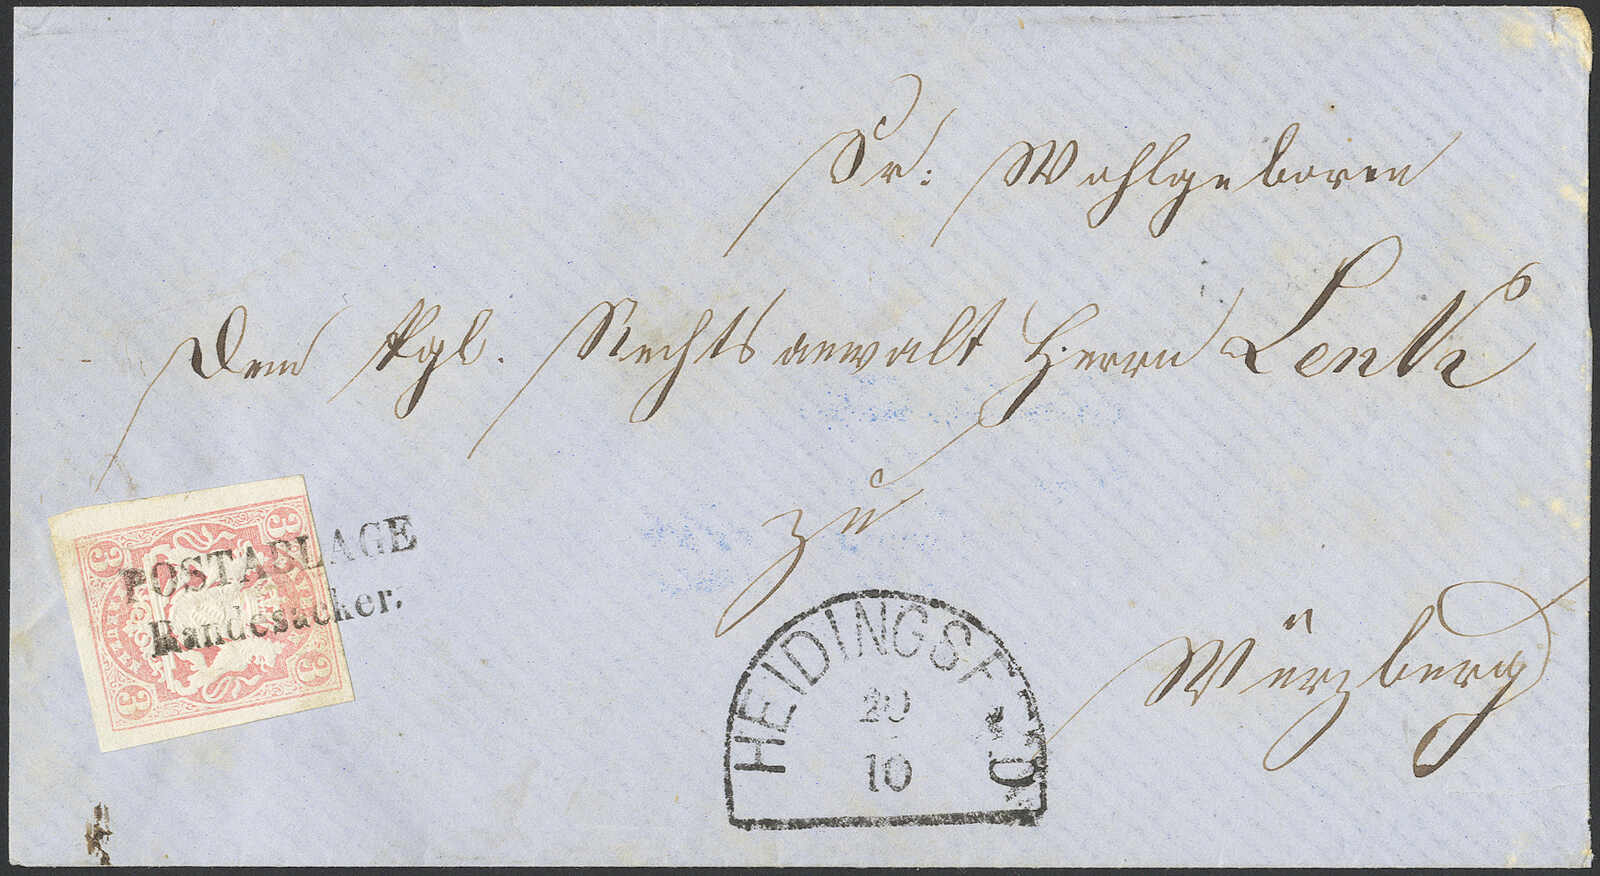 Sr: Wohlgeboren
Dem kgl. Rechtsanwalt Herrn
zu
Würzberg
3 3
POSTABLAGE
Randesacker.
3 3
HEIDINGSFELD
20
10